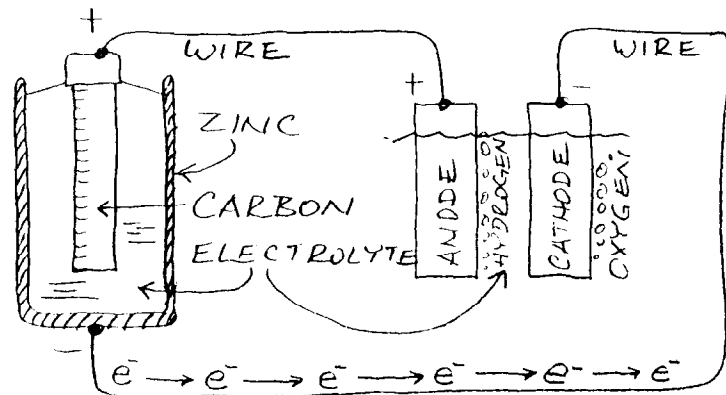 +
WIRE
WIRE
+
−
ZINC
CARBON
ELECTROLYTE
ANODE
HYDROGEN
CATHODE
OXYGEN
−
e⁻ → e⁻ → e⁻ → e⁻ → e⁻ → e⁻